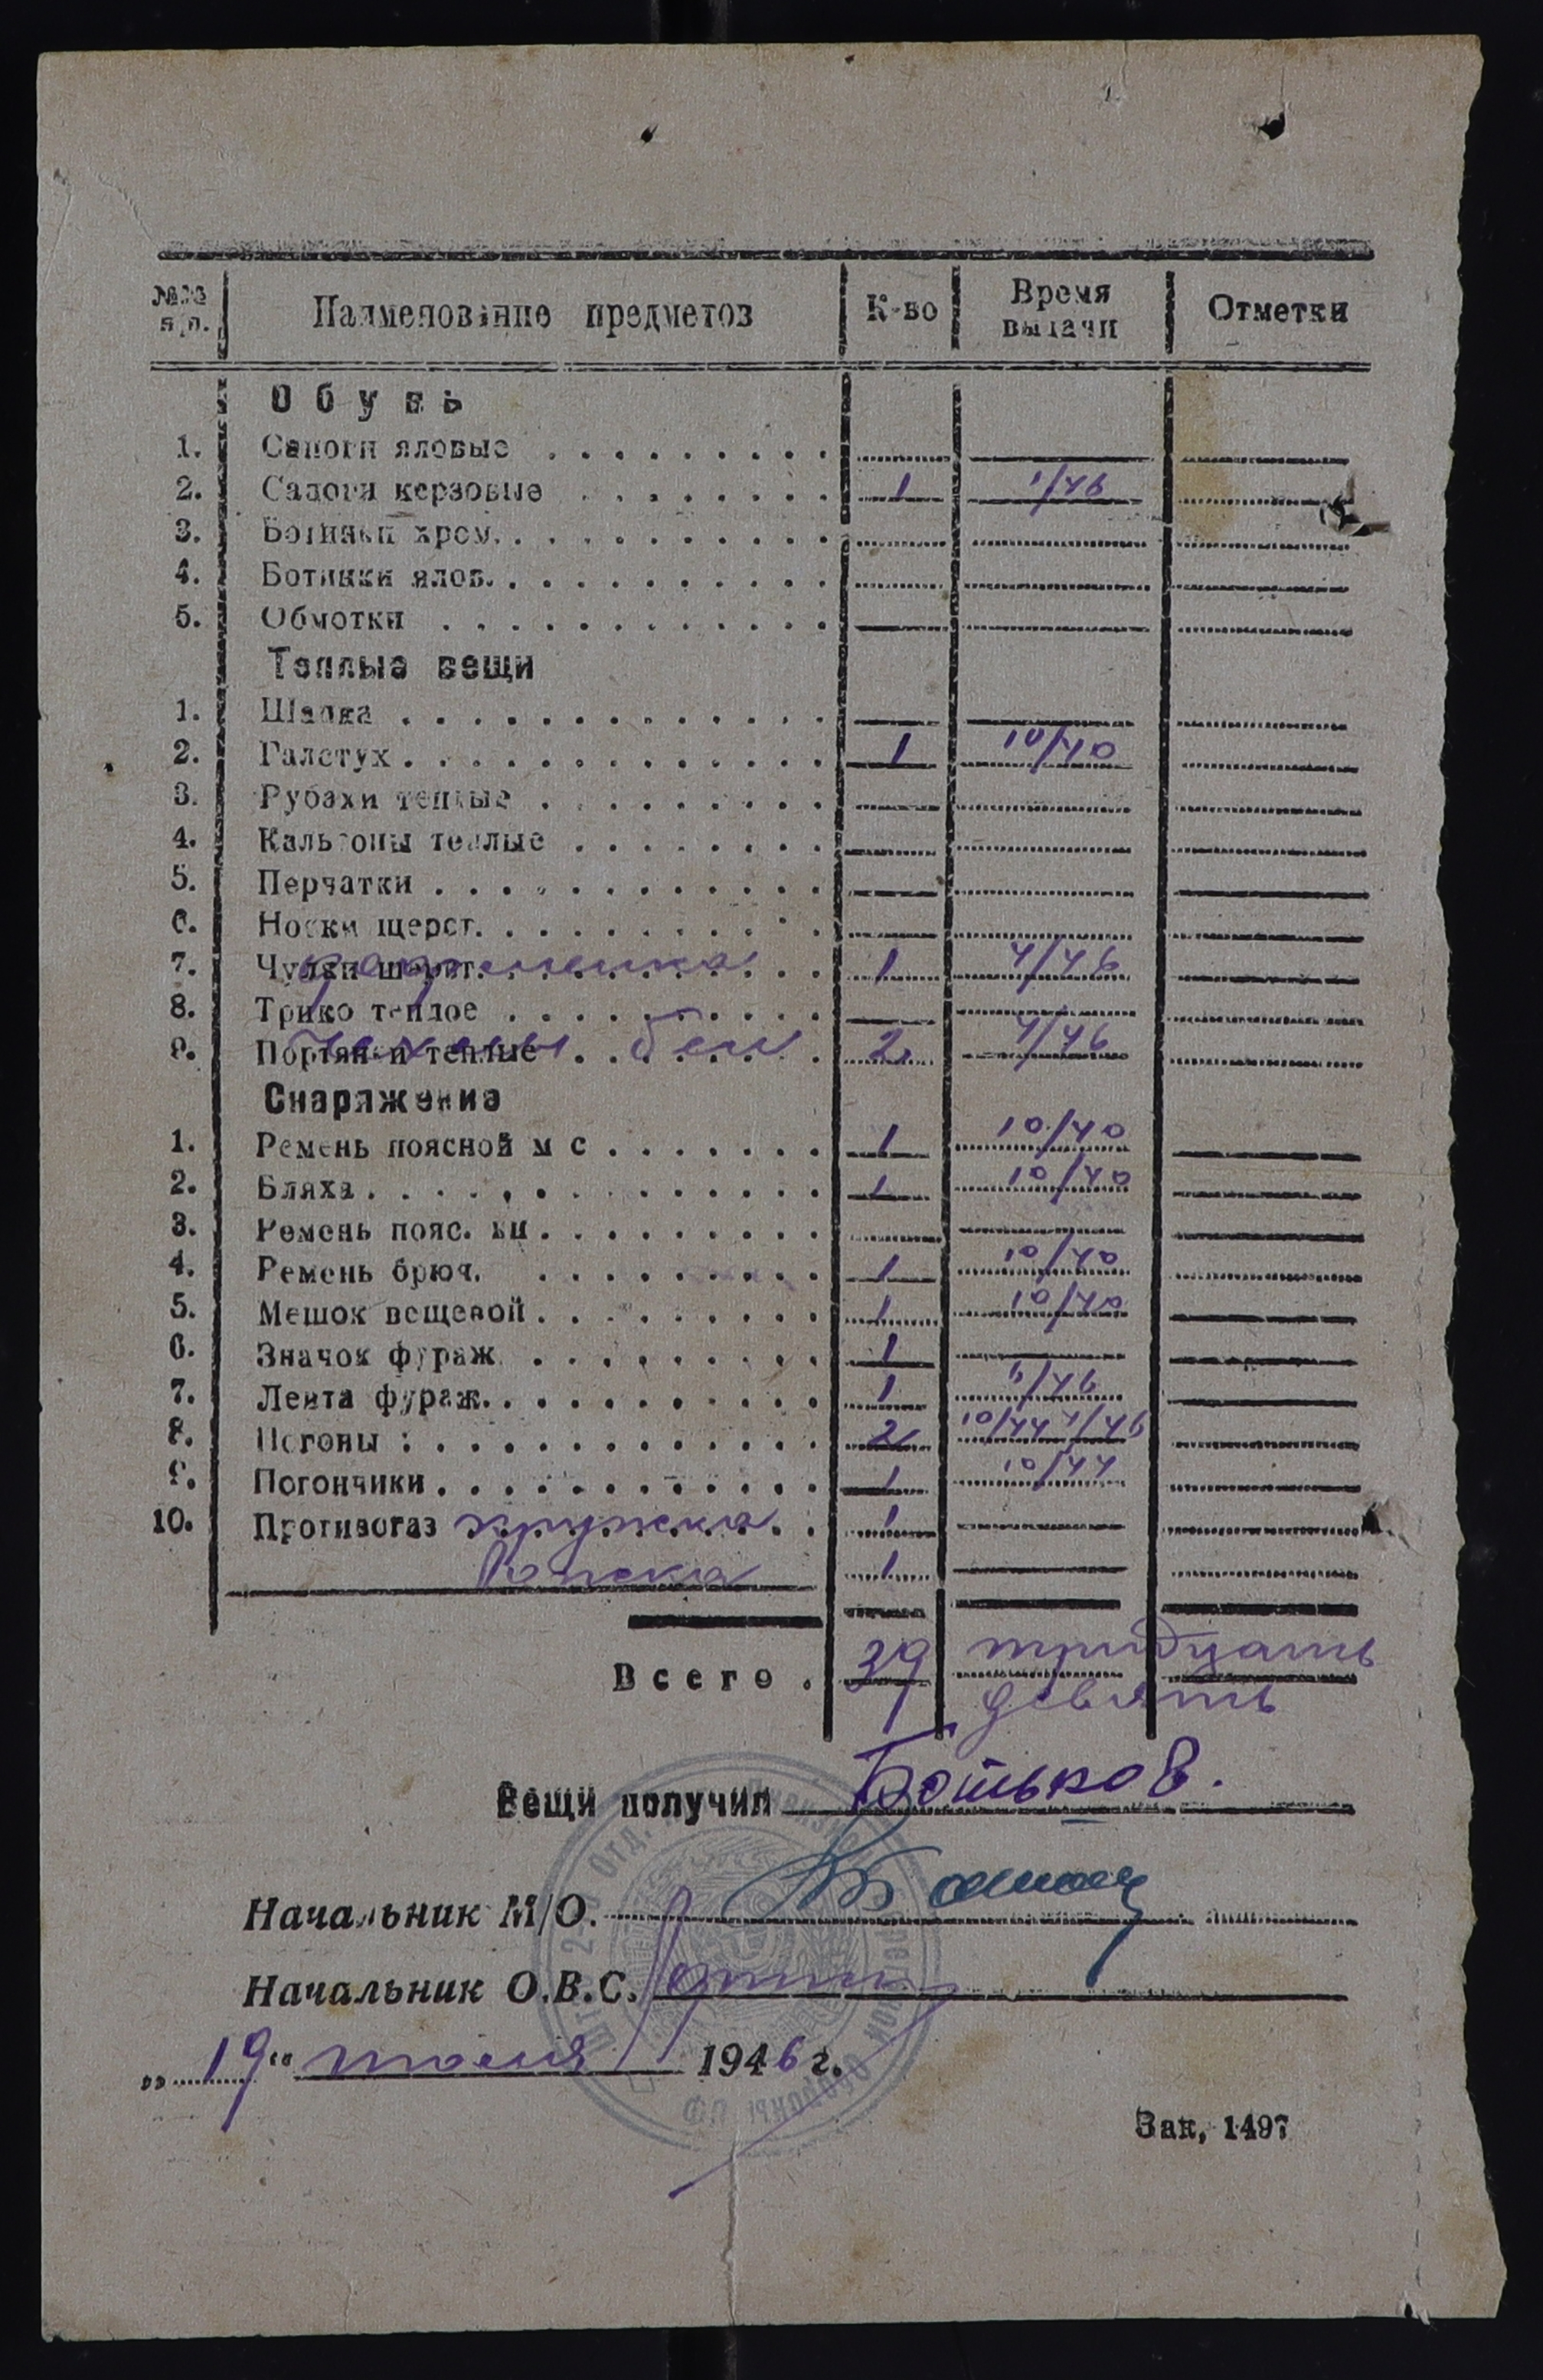 №№ п/п. Наименование предметов К-во Время выдачи Отметки
Обувь
1. Сапоги яловые
2. Сапоги керзовые 1 1/46
3. Ботинки хром.
4. Ботинки ялов.
5. Обмотки
Теплые вещи
1. Шапка
2. Галстух 1 10/40
3. Рубахи теплые
4. Кальсоны теплые
5. Перчатки
6. Носки шерст.
7. Чулки шерст. 1 4/46
8. Трико теплое
9. Портянки теплые 2 4/46
Снаряжение
1. Ремень поясной м с 1 10/40
2. Бляха 1 10/40
3. Ремень пояс. кн
4. Ремень брюч. 1 10/40
5. Мешок вещевой 1 10/40
6. Значок фураж. 1
7. Лента фураж. 1
8. Погоны 2 10/44 4/46
9. Погончики 1 10/44
10. Противогаз кружка 1
Ложка 1
Всего 39 тридцать
девять
Вещи получил Ботьков.
Начальник М/О.
Начальник О.В.С.
„19" июля 1946 г.
Зак, 1497